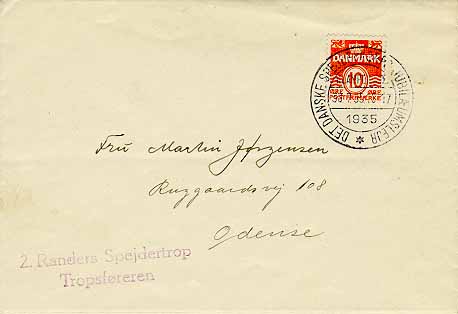 DANMARK
10
ØRE ØRE
DET DANSKE JUBILÆUMSLEJR *
1935
Fru Martin Jørgensen
108
Odense
2. Randers Spejdertrop
Tropsføreren